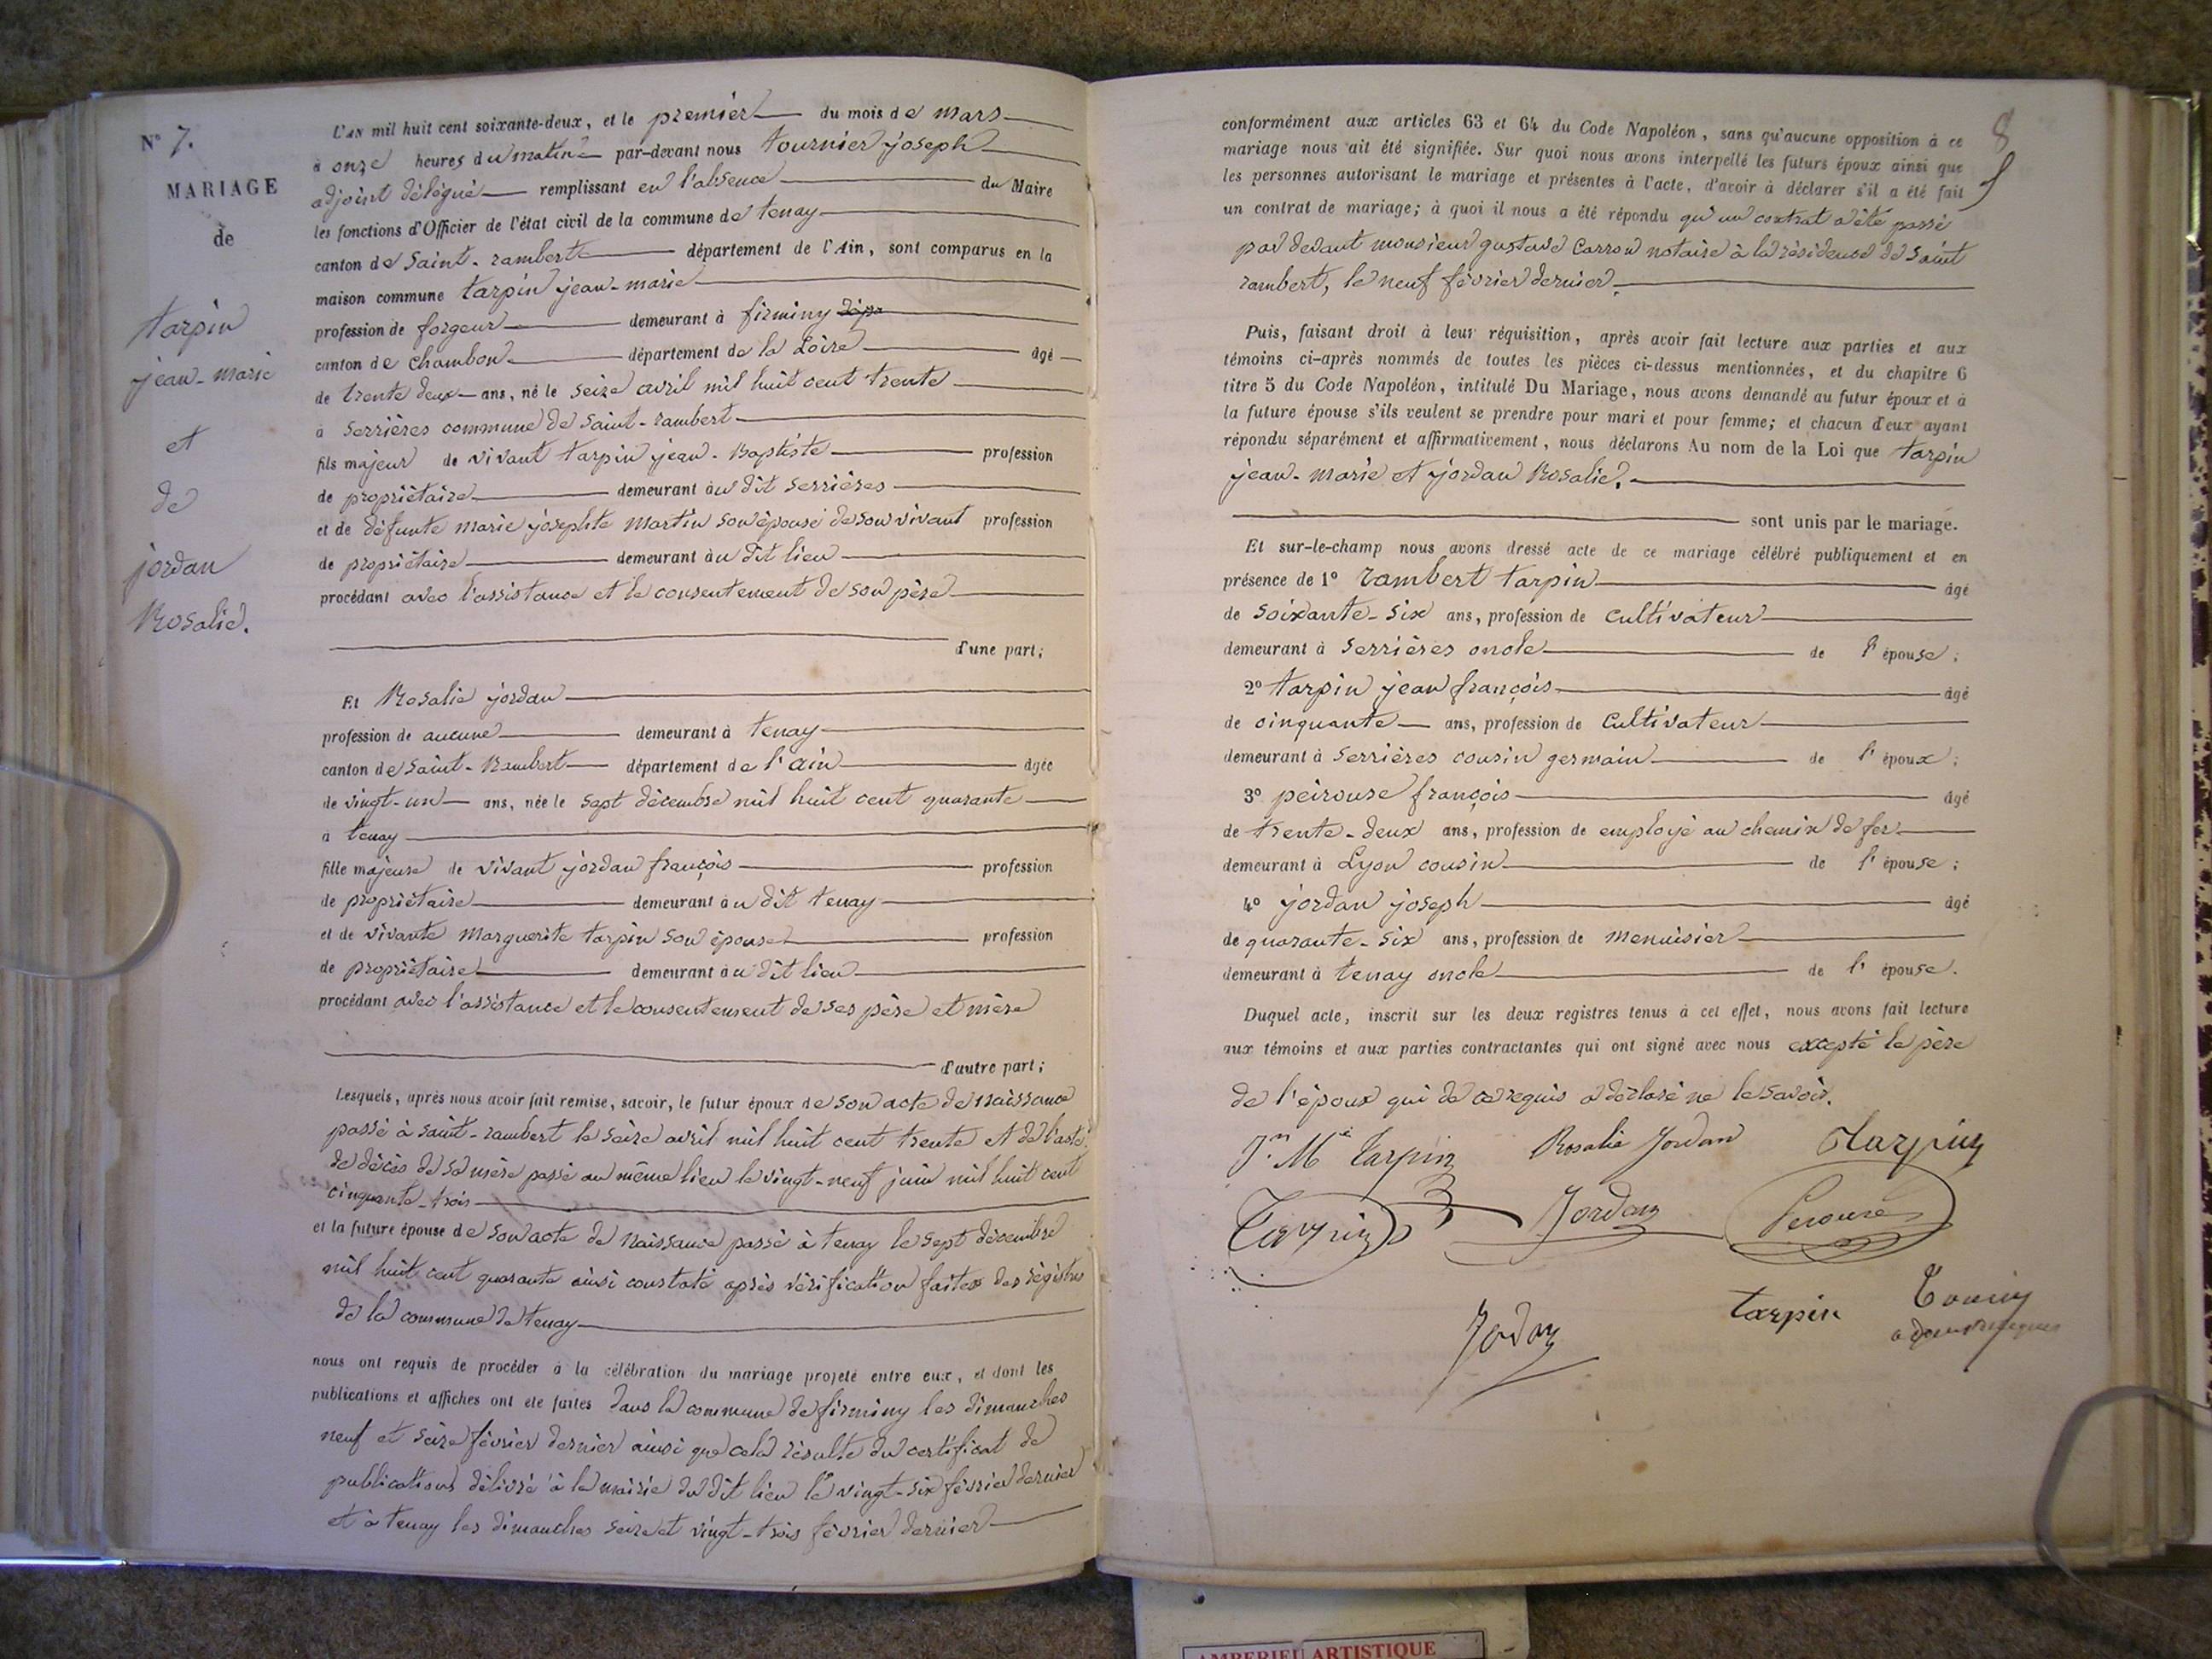 N° 7.
MARIAGE
de
tarpin
jean-marie
et
de
jordan
Rosalie.
L'AN mil huit cent soixante-deux, et le premier du mois de mars
à onze heures du matin par-devant nous tournier joseph
adjoint délégué remplissant en l'absence du Maire
les fonctions d'Officier de l'état civil de la commune de tenay
canton de saint-rambert département de l'Ain, sont comparus en la
maison commune tarpin jean-marie
profession de forgeur demeurant à firminy
canton de chambon département de la Loire âgé
de trente deux ans, né le seize avril mil huit cent trente
à serrières commune de saint-rambert
fils majeur de vivant tarpin jean-Baptiste profession
de propriétaire demeurant au dit serrières
et de défunte marie josephte martin son épouse de son vivant profession
de propriétaire demeurant au dit lieu
procédant avec l'assistance et le consentement de son père
d'une part;
Et Rosalie jordan
profession de aucune demeurant à tenay
canton de saint-Rambert département de l'ain âgée
de vingt-un ans, née le sept décembre mil huit cent quarante
à tenay
fille majeure de vivant jordan françois profession
de propriétaire demeurant au dit tenay
et de vivante marguerite tarpin son épouse profession
de propriétaire demeurant au dit lieu
procédant avec l'assistance et le consentement de ses père et mère
d'autre part;
Lesquels, après nous avoir fait remise, savoir, le futur époux de son acte de naissance
passé à saint-rambert le seize avril mil huit cent trente et de l'acte
de décès de sa mère passé au même lieu le vingt-neuf juin mil huit cent
cinquante-trois
et la future épouse de son acte de naissance passé à tenay le sept décembre
mil huit cent quarante ainsi constaté après vérification faites des régistres
de la commune de tenay
nous ont requis de procéder à la célébration du mariage projeté entre eux, et dont les
publications et affiches ont été faites dans la commune de firminy les dimanches
neuf et seize février dernier ainsi que cela résulte du certificat de
publications délivré à la mairie du dit lieu le vingt-six février dernier
et à tenay les dimanches seize et vingt-trois février dernier
8
conformément aux articles 63 et 64 du Code Napoléon, sans qu'aucune opposition à ce
mariage nous ait été signifiée. Sur quoi nous avons interpellé les futurs époux ainsi que
les personnes autorisant le mariage et présentes à l'acte, d'avoir à déclarer s'il a été fait
un contrat de mariage; à quoi il nous a été répondu qu'un contrat a été passé
par devant monsieur gustave Carron notaire à la résidence de saint
rambert, le neuf février dernier.
Puis, faisant droit à leur réquisition, après avoir fait lecture aux parties et aux
témoins ci-après nommés de toutes les pièces ci-dessus mentionnées, et du chapitre 6
titre 5 du Code Napoléon, intitulé Du Mariage, nous avons demandé au futur époux et à
la future épouse s'ils veulent se prendre pour mari et pour femme; et chacun d'eux ayant
répondu séparément et affirmativement, nous déclarons Au nom de la Loi que tarpin
jean-marie et jordan Rosalie.
sont unis par le mariage.
Et sur-le-champ nous avons dressé acte de ce mariage célébré publiquement et en
présence de 1° rambert tarpin âgé
de soixante-six ans, profession de cultivateur
demeurant à serrières oncle de l'épouse;
2° tarpin jean françois âgé
de cinquante ans, profession de cultivateur
demeurant à serrières cousin germain de l'époux;
3° peirouse françois âgé
de trente-deux ans, profession de employé au chemin de fer
demeurant à Lyon cousin de l'épouse;
4° jordan joseph âgé
de quarante-six ans, profession de menuisier
demeurant à tenay oncle de l'épouse.
Duquel acte, inscrit sur les deux registres tenus à cet effet, nous avons fait lecture
aux témoins et aux parties contractantes qui ont signé avec nous excepté le père
de l'époux qui de ce requis a déclaré ne le savoir.
Jn Mie Tarpin Rosalie Jordan Tarpin
Tarpin Jordan Perouse
Jordan tarpin
AMBERIEU ARTISTIQUE